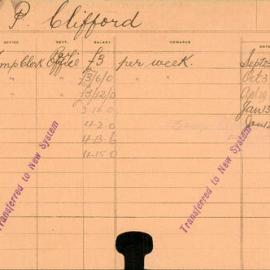 P. Clifford
OFFICE DEPT. SALARY REMARKS DATE
Temp Clerk Office £3 per week. Sept
" " £3/6/0 " Oct 3
£3/12/0
3.16.0 Jan 13
4.2.0 Jan
4.13.6
4.15.0
Transferred to New System
Transferred to New System